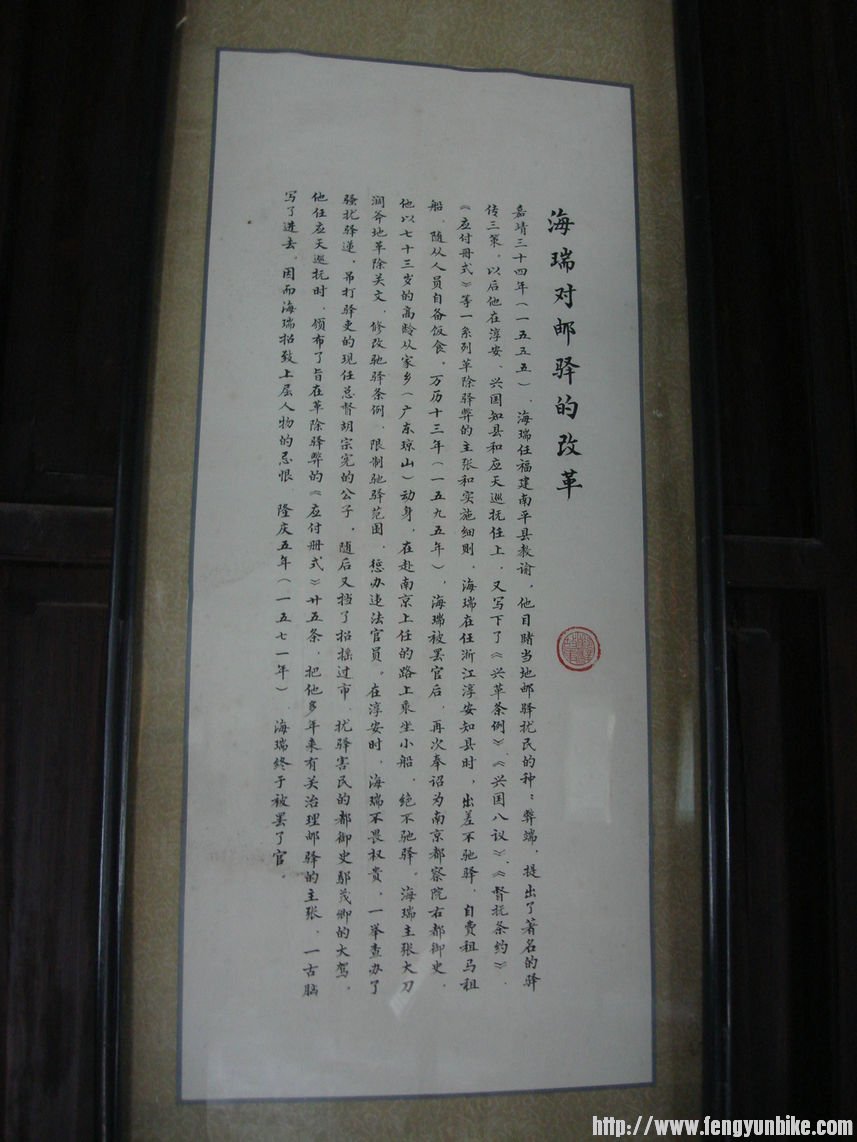 海瑞对邮驿的改革
嘉靖三十四年(一五五五)、海瑞任福建南平县教谕,他目睹当地邮驿扰民的种:弊端,提出了著名的驿
传三策,以后他在淳安、兴国知县和应天巡抚任上,又写下了《兴革条例》、《兴国八议》、《督抚条约》、
《应付册式》等一系列革除驿弊的主张和实施细则,海瑞在任浙江淳安知县时,出差不驰驿,自费租马租
船,随从人员自备饭食,万历十三年(一五九五年),海瑞被罢官后,再次奉诏为南京都察院右都御史,
他以七十三岁的高龄从家乡(广东琼山)动身,在赴南京上任的路上乘坐小船,绝不驰驿,海瑞主张大刀
阔斧地革除关文,修改驰驿条例,限制驰驿范围,惩办违法官员。在淳安时,海瑞不畏权贵,一举查办了
骚扰驿递,吊打驿吏的现任总督胡宗宪的公子,随后又挡了招摇过市,扰驿害民的都御史鄢茂卿的大驾,
他任应天巡抚时,颁布了旨在革除驿弊的《应付册式》廿五条,把他多年来有关治理邮驿的主张,一古脑
写了进去,因而海瑞招致上层人物的忌恨 隆庆五年(一五七一年)海瑞终于被罢了官,
http://www.fengyunbike.com